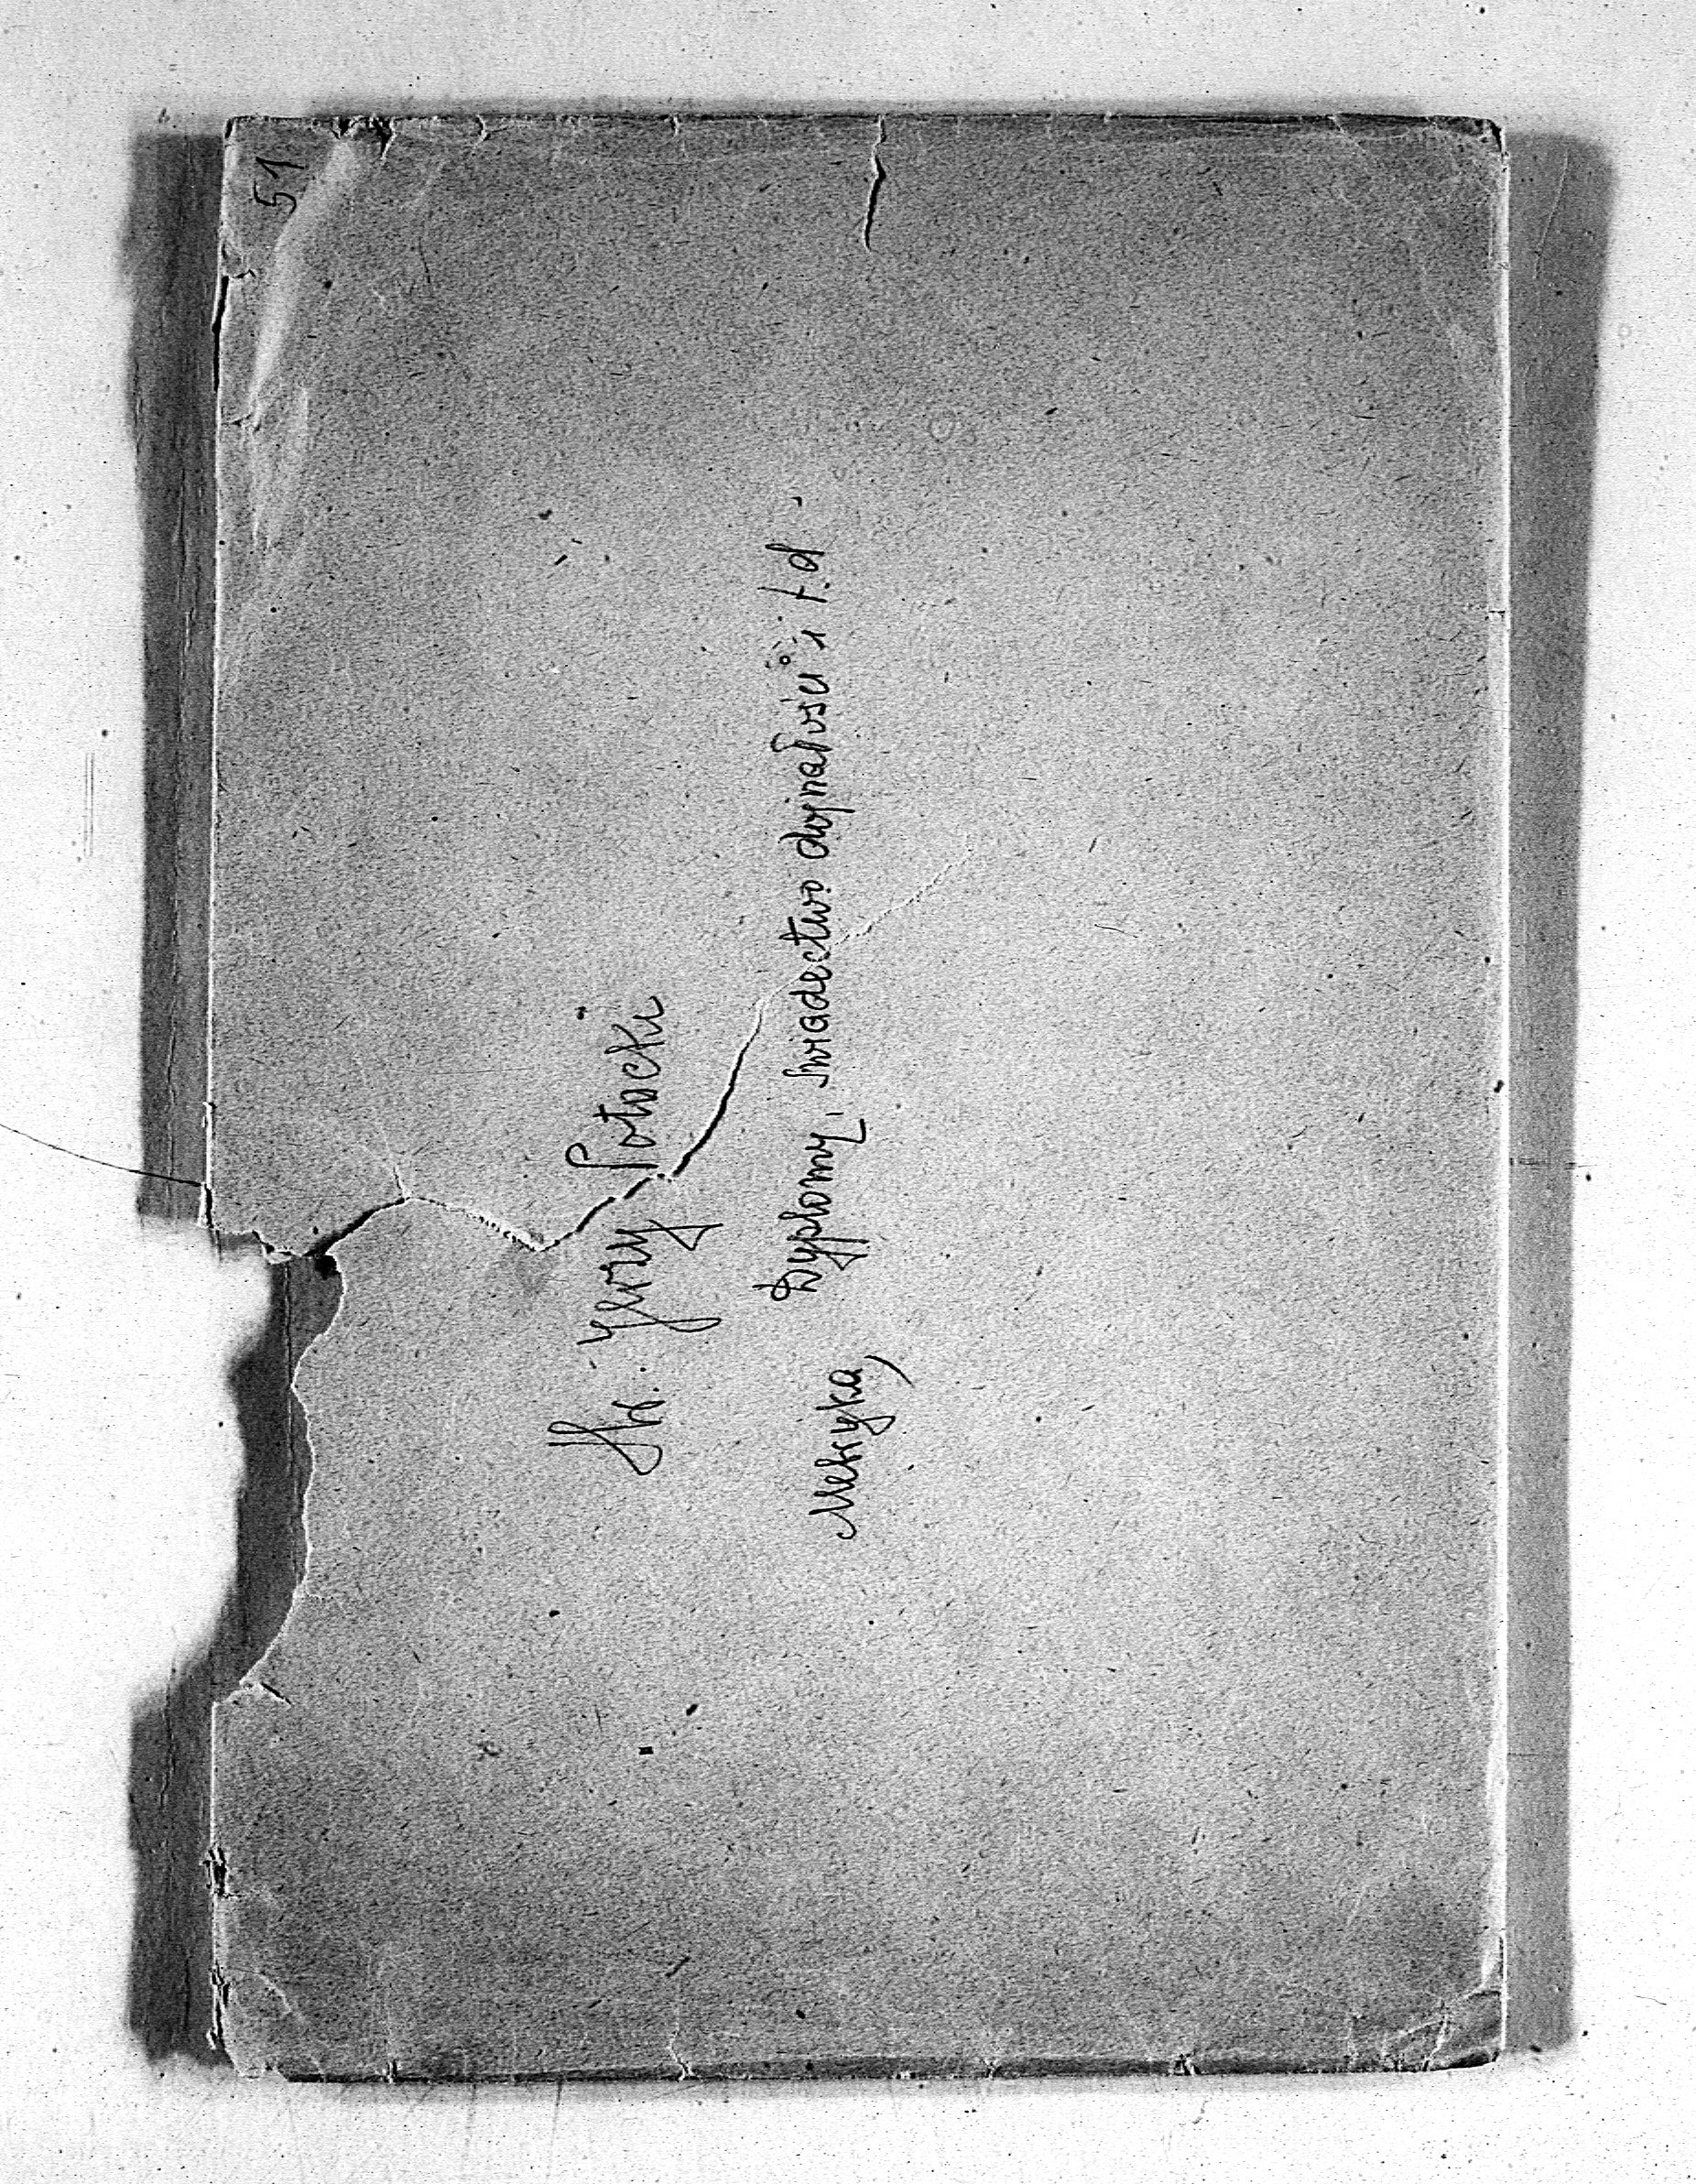 51
Hr. Jerzy Potocki
Metryka, Dyplomy, świadectwo dojrzałości i t.d.